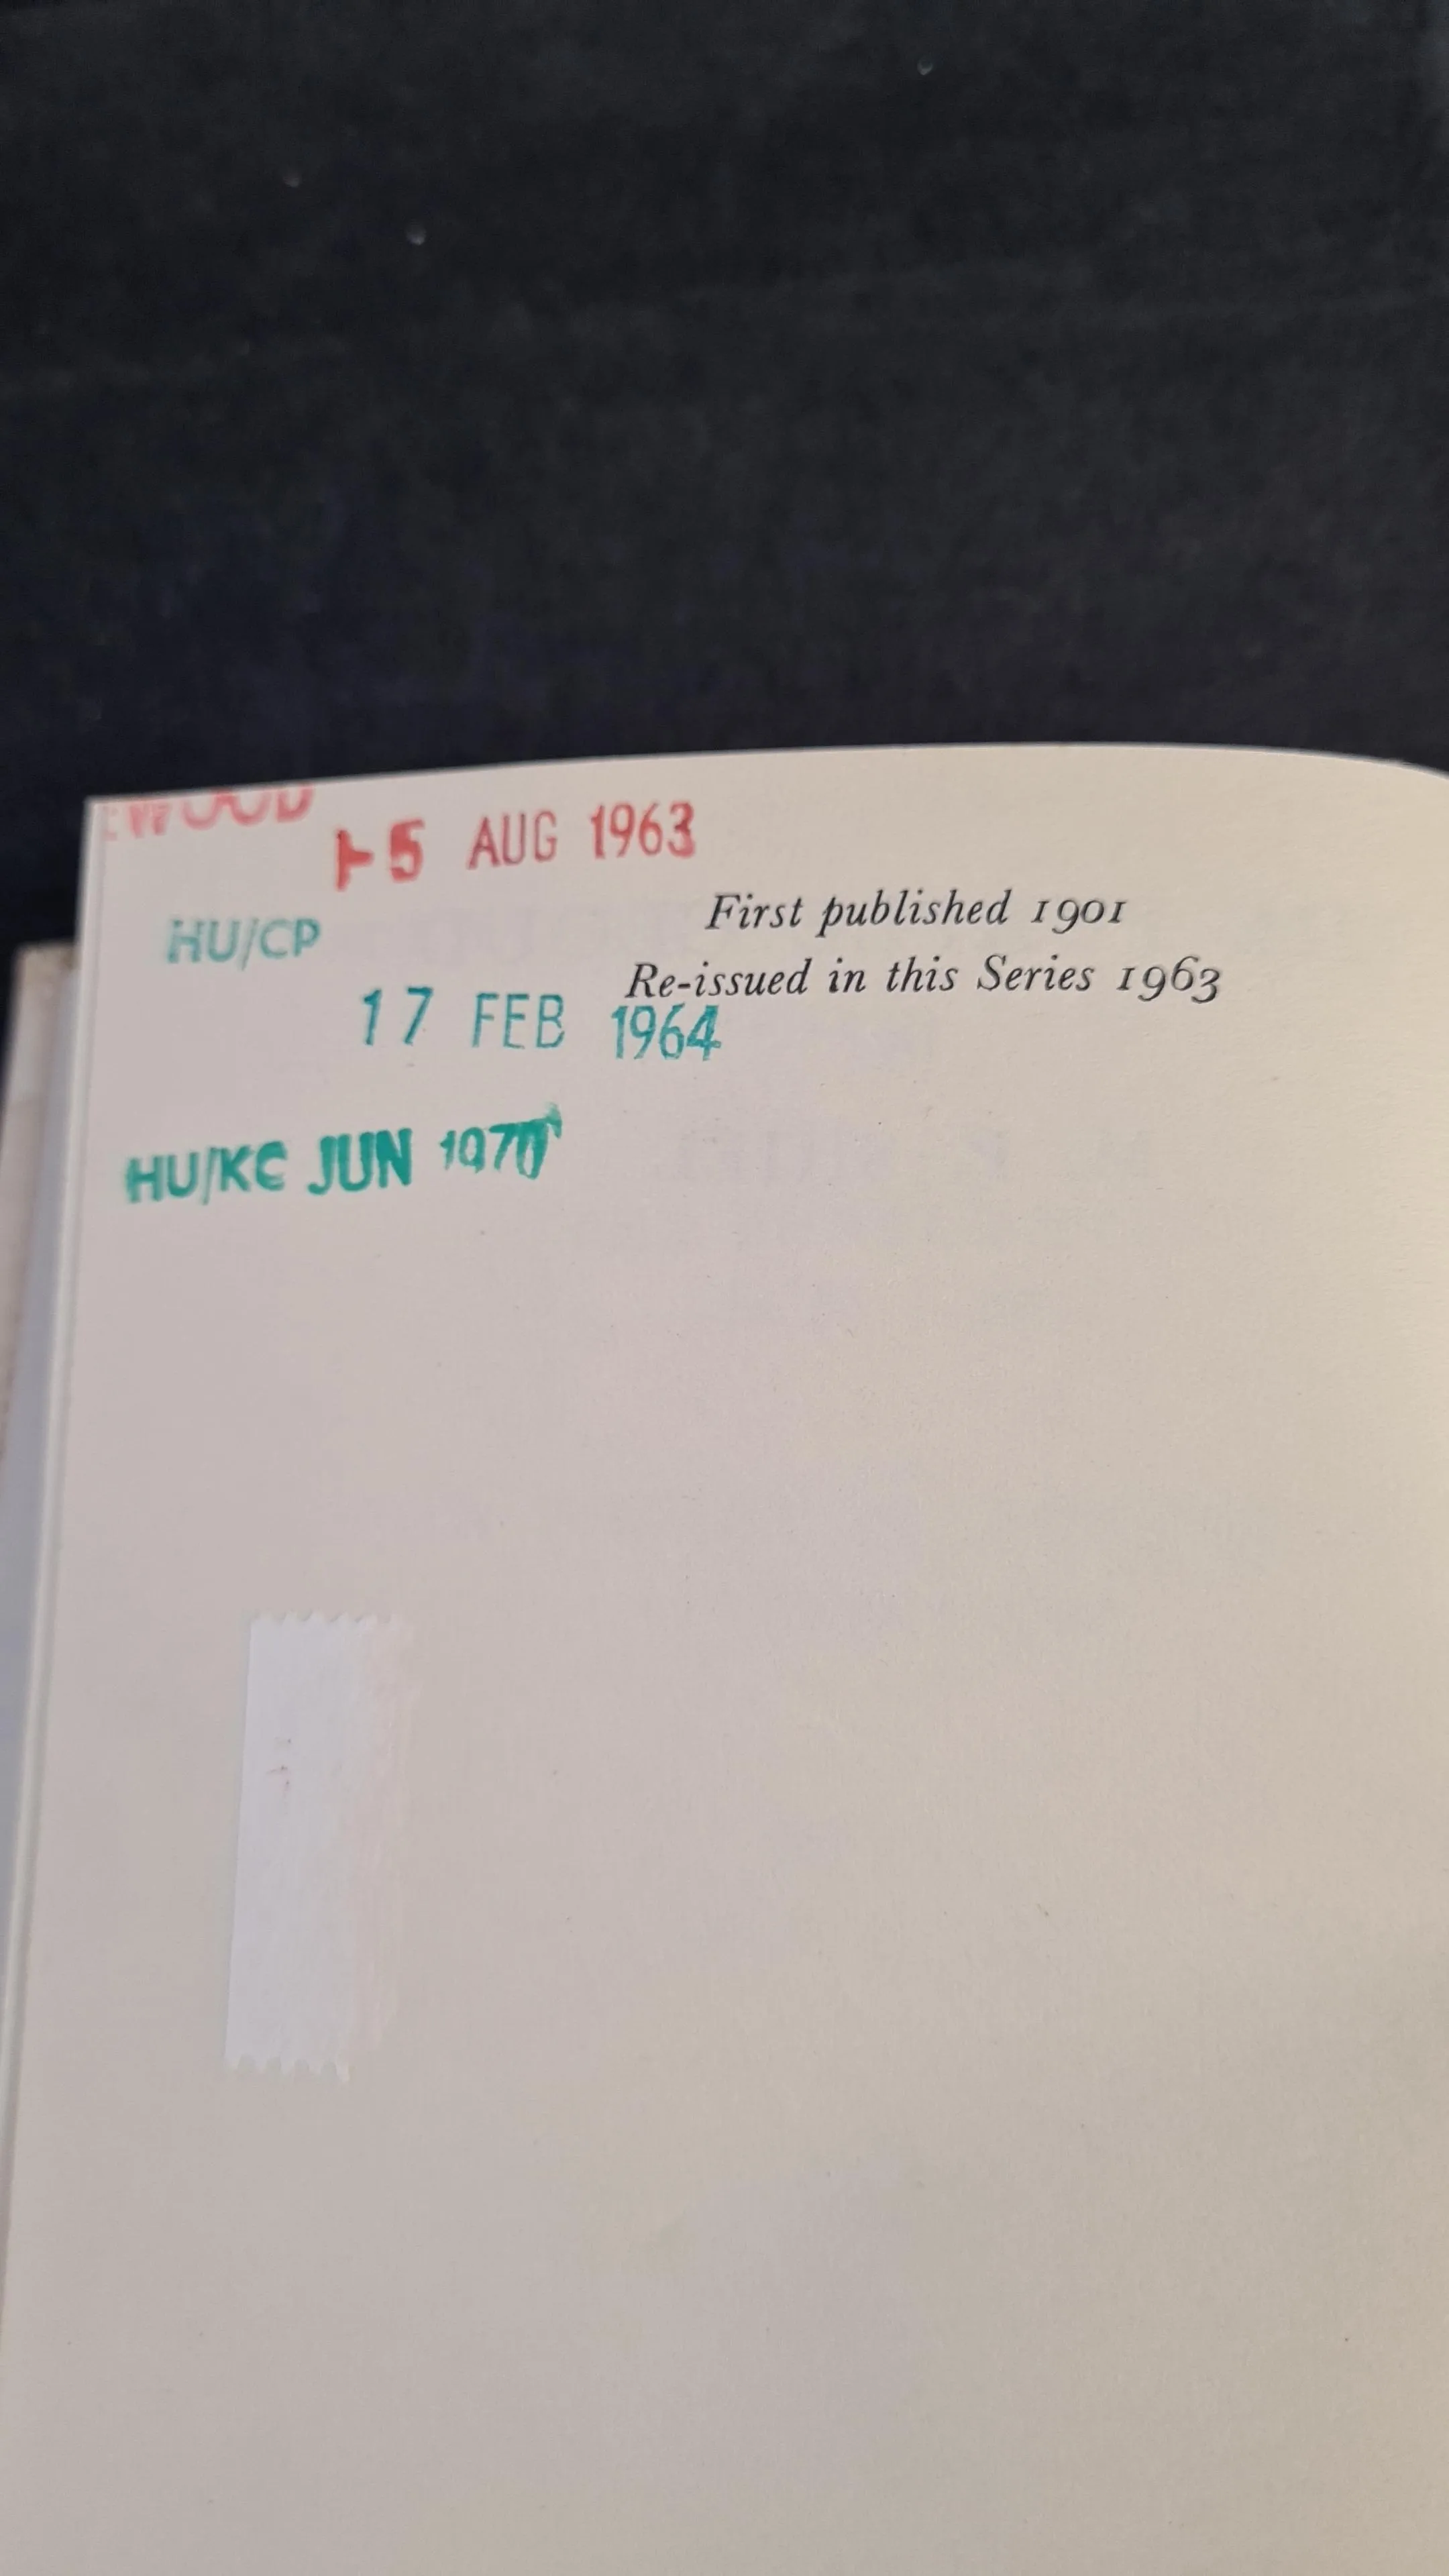 WOOD
5 AUG 1963
HU/CP
First published 1901
Re-issued in this Series 1963
17 FEB 1964
HU/KC JUN 1970